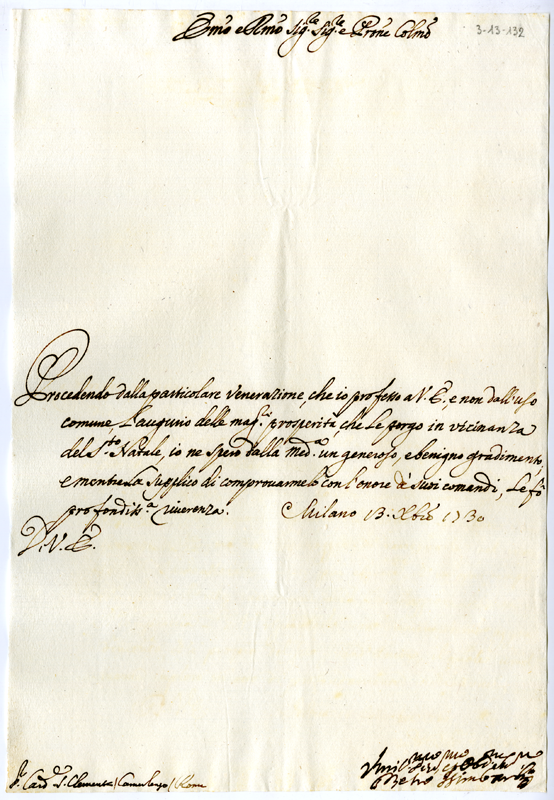 Emo e Rmo Sig.r Sig.r e Prone Colmo
3-13-132
Procedendo dalla particolare venerazione, che io professo a V. E., e non dall'uso
comune l'augurio delle mag.ri prosperità, che Le porgo in vicinanza
del S.to Natale, io ne spero dalla Med.a un generoso, e benigno gradimento,
e mentre La supplico di comprovarmelo con l'onore de' suoi comandi, Le fò
profondiss.a riverenza. Milano 13. Xbre 1730
D. V. E.
S.r Card. S. Clemente Camerlengo / Roma